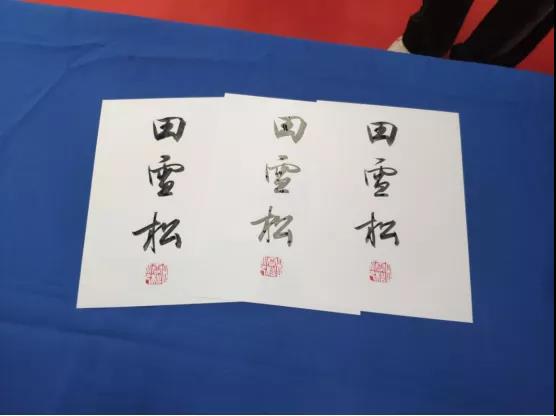 田雪松
田雪松
田雪松